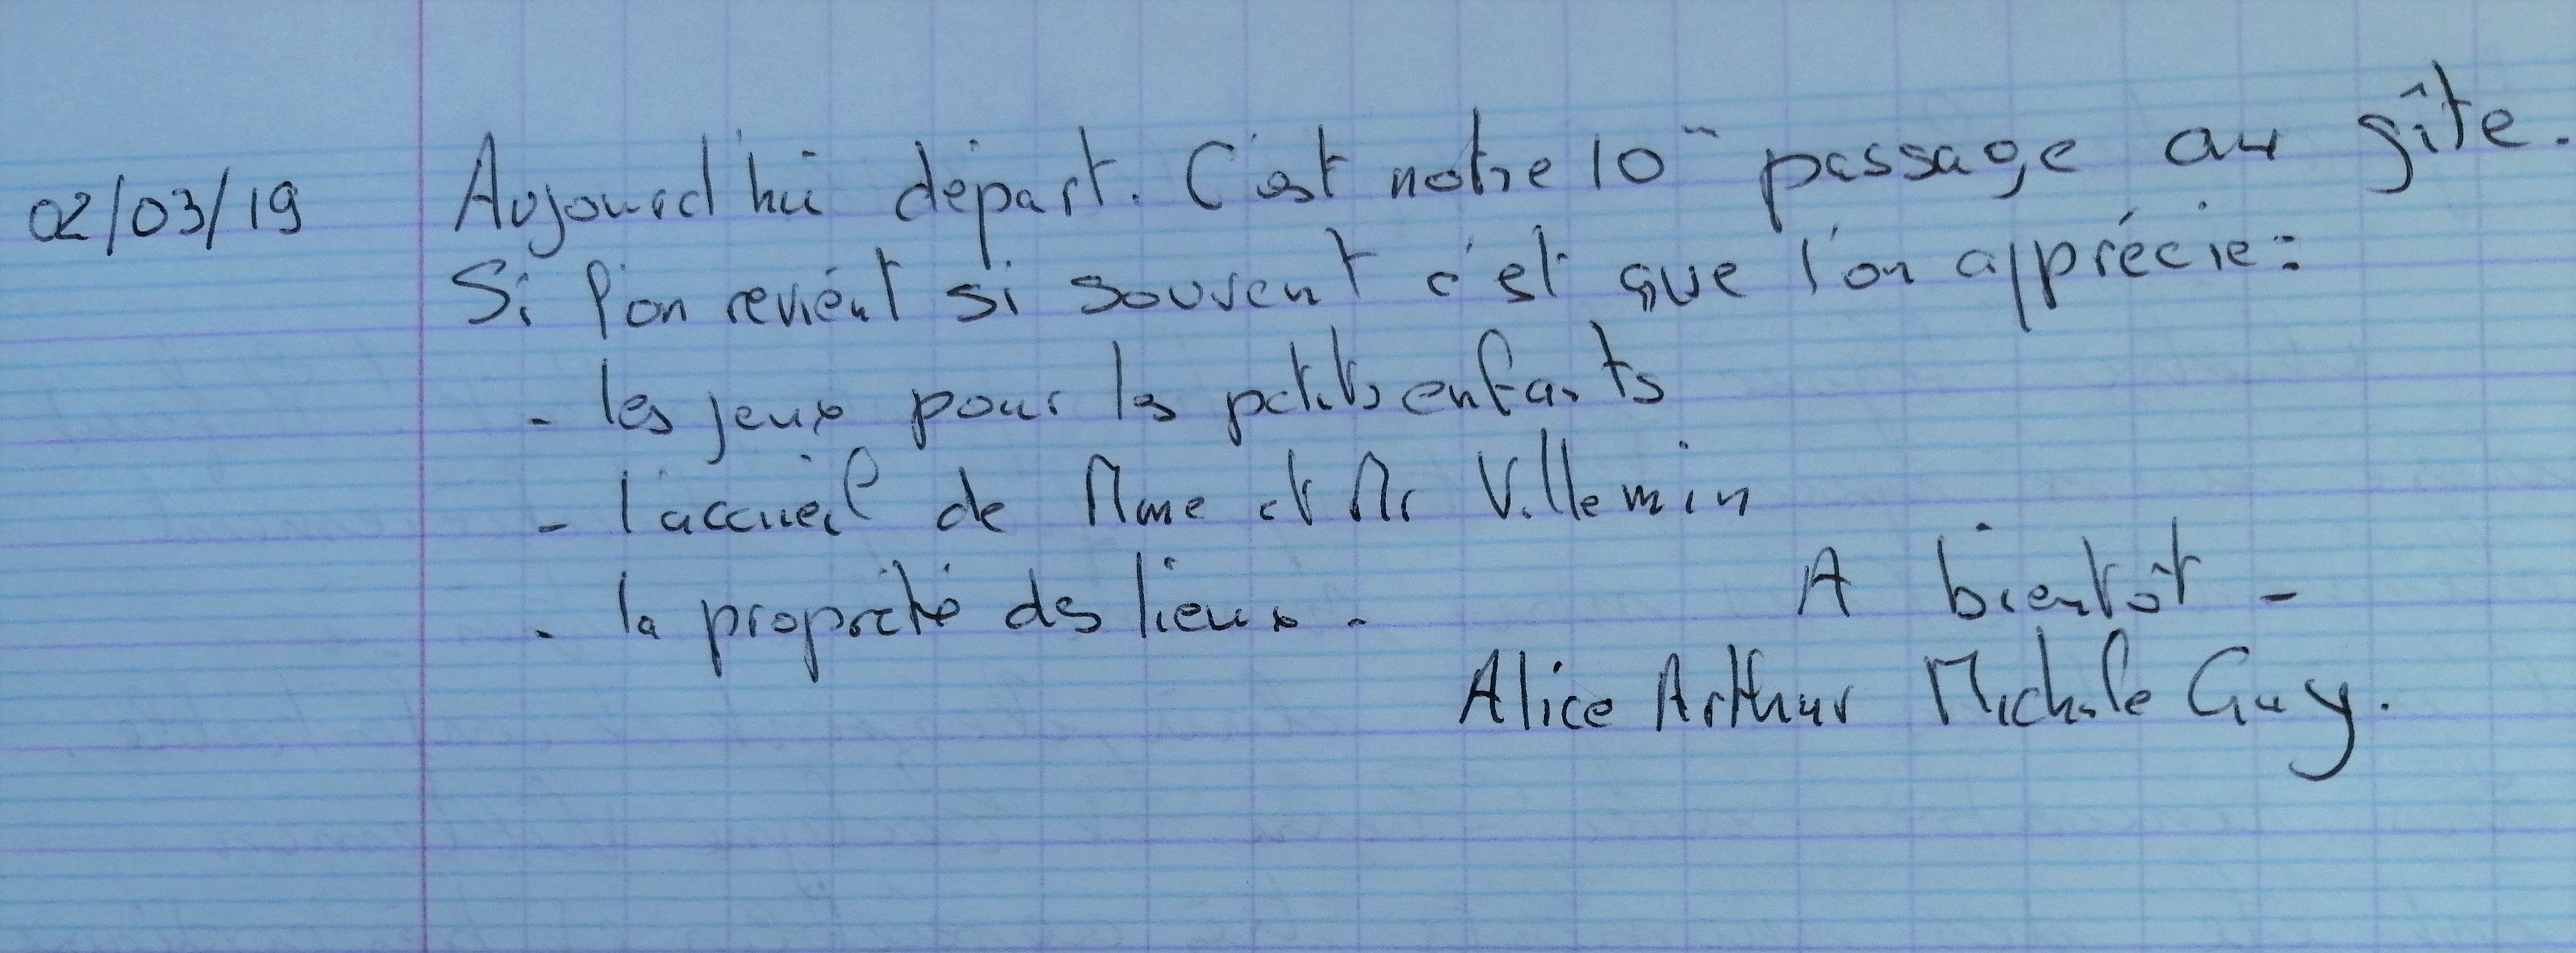 02/03/19 Aujourd'hui départ. C'est notre 10ᵐ passage au gîte.
Si l'on revient si souvent c'est que l'on apprécie :
- les jeux pour les petits enfants
- l'accueil de Mme et Mr Villemin
- la propreté des lieux.
A bientôt -
Alice Arthur Michele Guy.